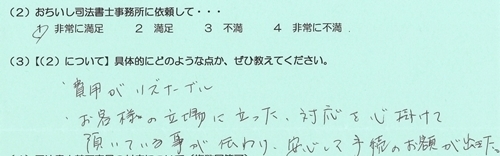 (2) おちいし司法書士事務所に依頼して・・・
1 非常に満足 2 満足 3 不満 4 非常に不満
(3)【(2)について】具体的にどのような点か、ぜひ教えてください。
・費用がリズナーブル
・お客様の立場に立った、対応を心掛けて
頂いている事が伝わり、安心して手続のお願が出きた。